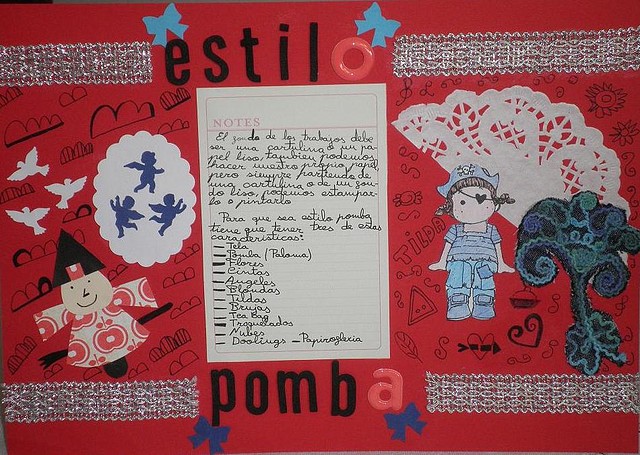 estilo
NOTES
El fondo de los trabajos debe
ser una cartulina o un pa-
pel liso, tambien podemos
hacer nuestro propio papel
pero siempre partiendo de
una cartulina o de un fon-
do liso, podemos estampar-
lo o pintarlo
Para que sea estilo pomba
tiene que tener tres de estas
caracteristicas:
Tela
Pomba (Paloma)
Flores
Cintas
Angeles
Blondas
Tildas
Brujas
Tea Bag
Troquelados
Nubes
Doolings - Papirogleria
TILDA
pomba